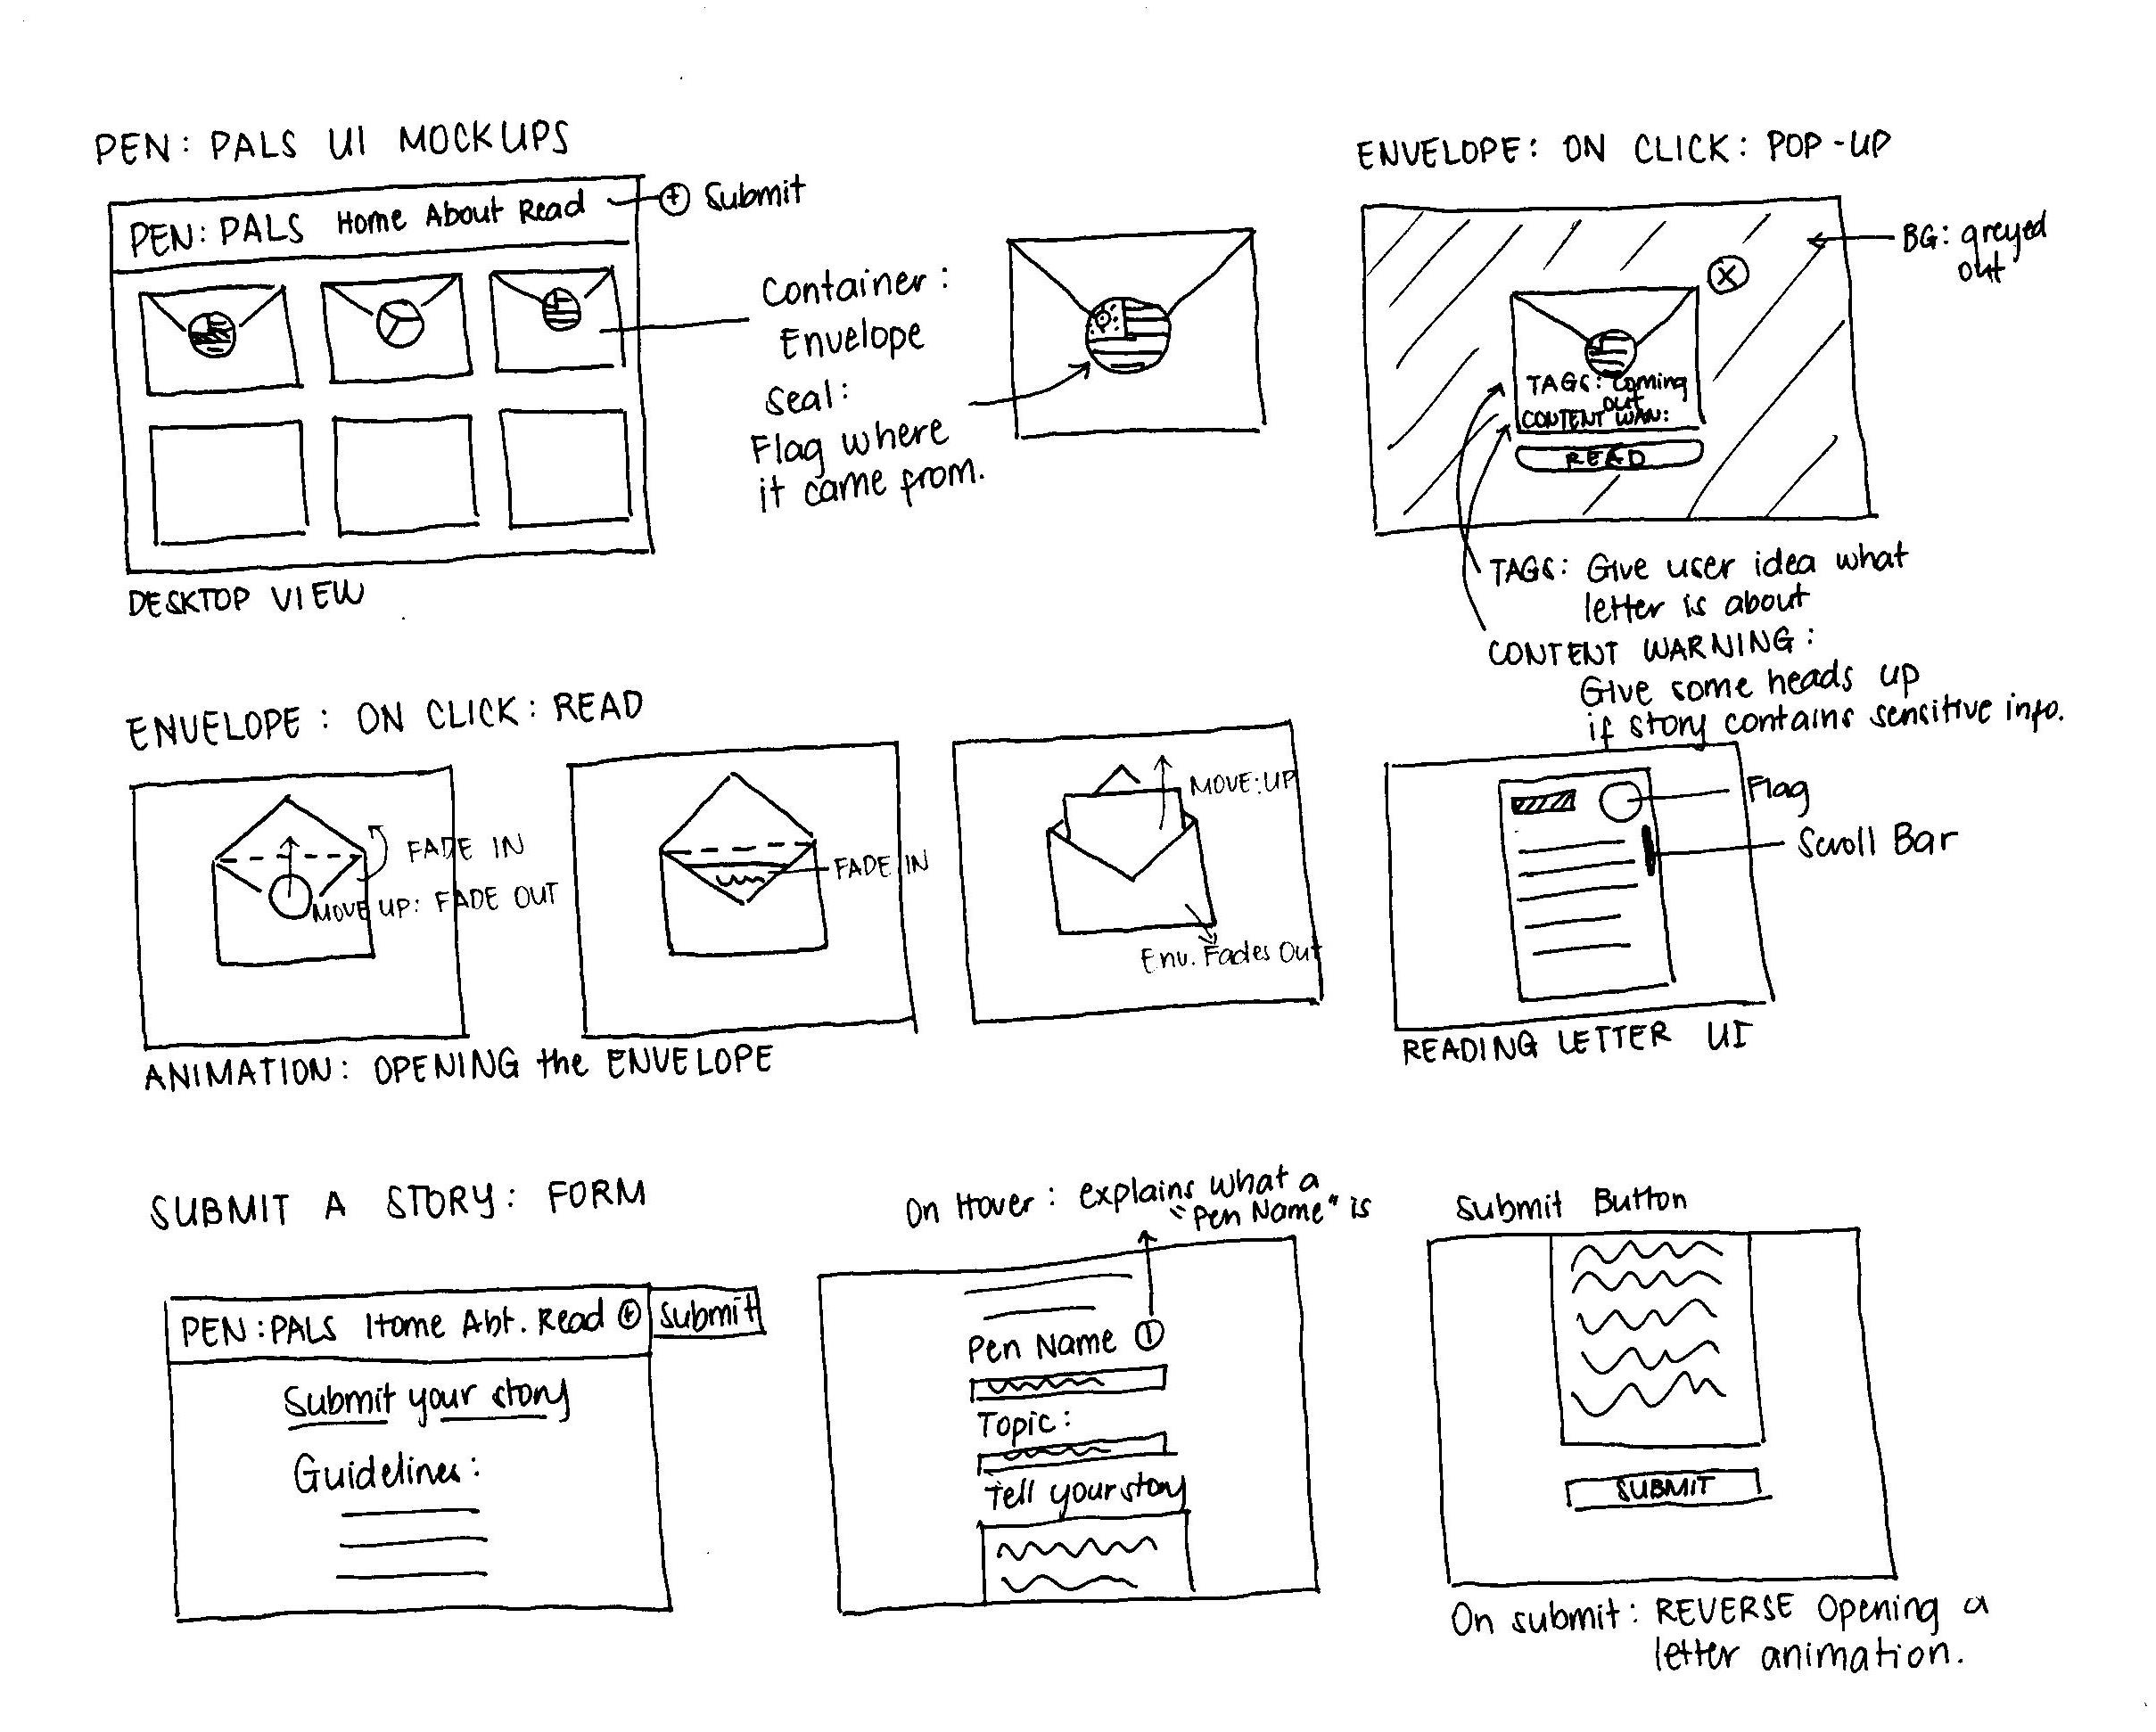 PEN: PALS UI MOCKUPS
PEN: PALS Home About Read
+ Submit
DESKTOP VIEW
Container:
Envelope
Seal:
Flag where
it came from.
ENVELOPE: ON CLICK: POP-UP
BG: greyed
out
X
TAGS: Coming
out
CONTENT WAN:
READ
TAGS: Give user idea what
letter is about
CONTENT WARNING:
Give some heads up
if story contains sensitive info.
ENVELOPE: ON CLICK: READ
FADE IN
MOVE UP: FADE OUT
FADE IN
MOVE: UP
Env. Fades Out
ANIMATION: OPENING the ENVELOPE
Flag
Scroll Bar
READING LETTER UI
SUBMIT A STORY: FORM
PEN: PALS Home Abt. Read + Submit
Submit your story
Guidelines:
On Hover: explains what a
"Pen Name" is
Pen Name i
Topic:
Tell your story
Submit Button
SUBMIT
On submit: REVERSE Opening a
letter animation.